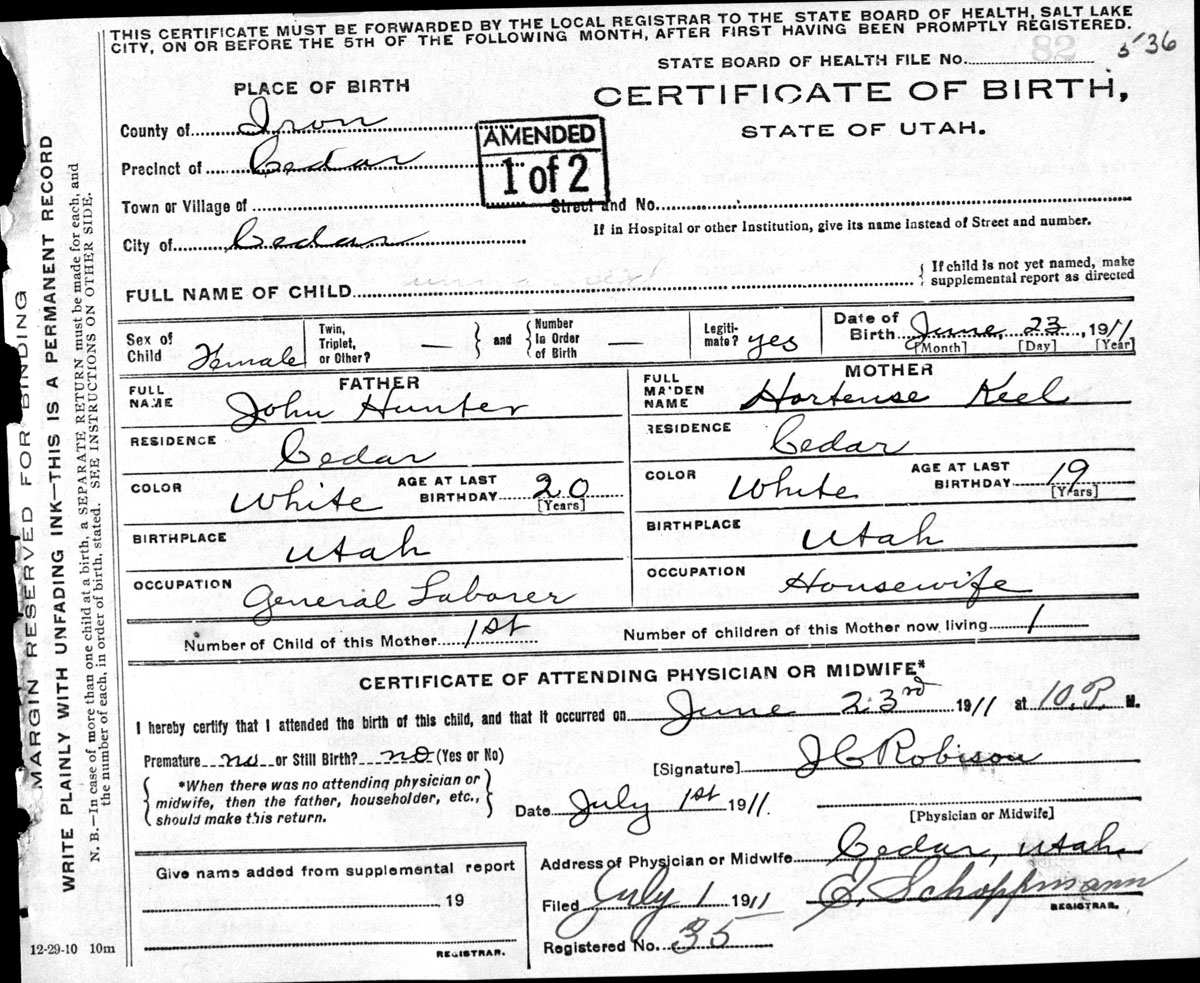 THIS CERTIFICATE MUST BE FORWARDED BY THE LOCAL REGISTRAR TO THE STATE BOARD OF HEALTH, SALT LAKE
CITY, ON OR BEFORE THE 5TH OF THE FOLLOWING MONTH, AFTER FIRST HAVING BEEN PROMPTLY REGISTERED.
82 5'36
STATE BOARD OF HEALTH FILE No.
PLACE OF BIRTH
CERTIFICATE OF BIRTH,
STATE OF UTAH.
County of Iron
AMENDED
1 of 2
Precinct of Cedar
Town or Village of Street and No.
If in Hospital or other Institution, give its name instead of Street and number.
City of Cedar
FULL NAME OF CHILD
If child is not yet named, make
supplemental report as directed
Sex of Child Female
Twin, Triplet, or Other? —
and Number in Order of Birth —
Legitimate? yes
Date of Birth June, 23, 1911
[Month] [Day] [Year]
FATHER MOTHER
FULL NAME John Hunter
FULL MAIDEN NAME Hortense Keel
RESIDENCE Cedar
RESIDENCE Cedar
COLOR White AGE AT LAST BIRTHDAY 20 [Years]
COLOR White AGE AT LAST BIRTHDAY 19 [Years]
BIRTHPLACE Utah
BIRTHPLACE Utah
OCCUPATION General Laborer
OCCUPATION Housewife
Number of Child of this Mother 1st Number of children of this Mother now living 1
CERTIFICATE OF ATTENDING PHYSICIAN OR MIDWIFE*
I hereby certify that I attended the birth of this child, and that it occurred on June 23rd 1911 at 10.P. M.
Premature no or Still Birth? no (Yes or No)
*When there was no attending physician or
midwife, then the father, householder, etc.,
should make this return.
[Signature] J C Robison
Date July 1st 1911.
[Physician or Midwife]
Give name added from supplemental report
19
REGISTRAR.
Address of Physician or Midwife Cedar, Utah.
Filed July 1 1911 E. Schoppmann
REGISTRAR.
Registered No. 35
12-29-10 10m
MARGIN RESERVED FOR BINDING
WRITE PLAINLY WITH UNFADING INK—THIS IS A PERMANENT RECORD
N. B.—In case of more than one child at a birth, a SEPARATE RETURN must be made for each, and
the number of each, in order of birth, stated. SEE INSTRUCTIONS ON OTHER SIDE.